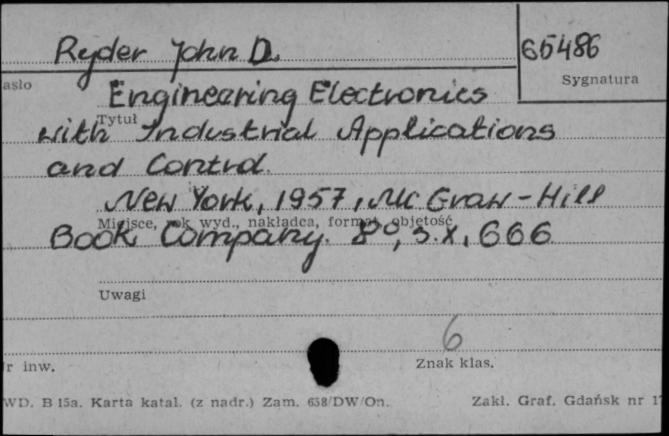 Ryder John D.
65486
asło
Sygnatura
Engineering Electronics
Tytuł
with Industrial Applications
and Control.
New York, 1957, Mc Graw-Hill
Miejsce, rok wyd., nakładca, format, objętość
Book Company. 8°, s. X, 666
Uwagi
6
r inw.
Znak klas.
WD. B 15a. Karta katal. (z nadr.) Zam. 658/DW/On.
Zakł. Graf. Gdańsk nr 1